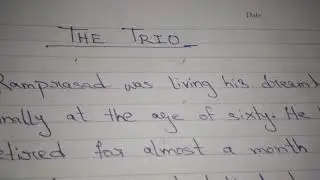 Date
THE TRIO
Ramprasad was living his dream
nally at the age of sixty. He
etired for almost a month